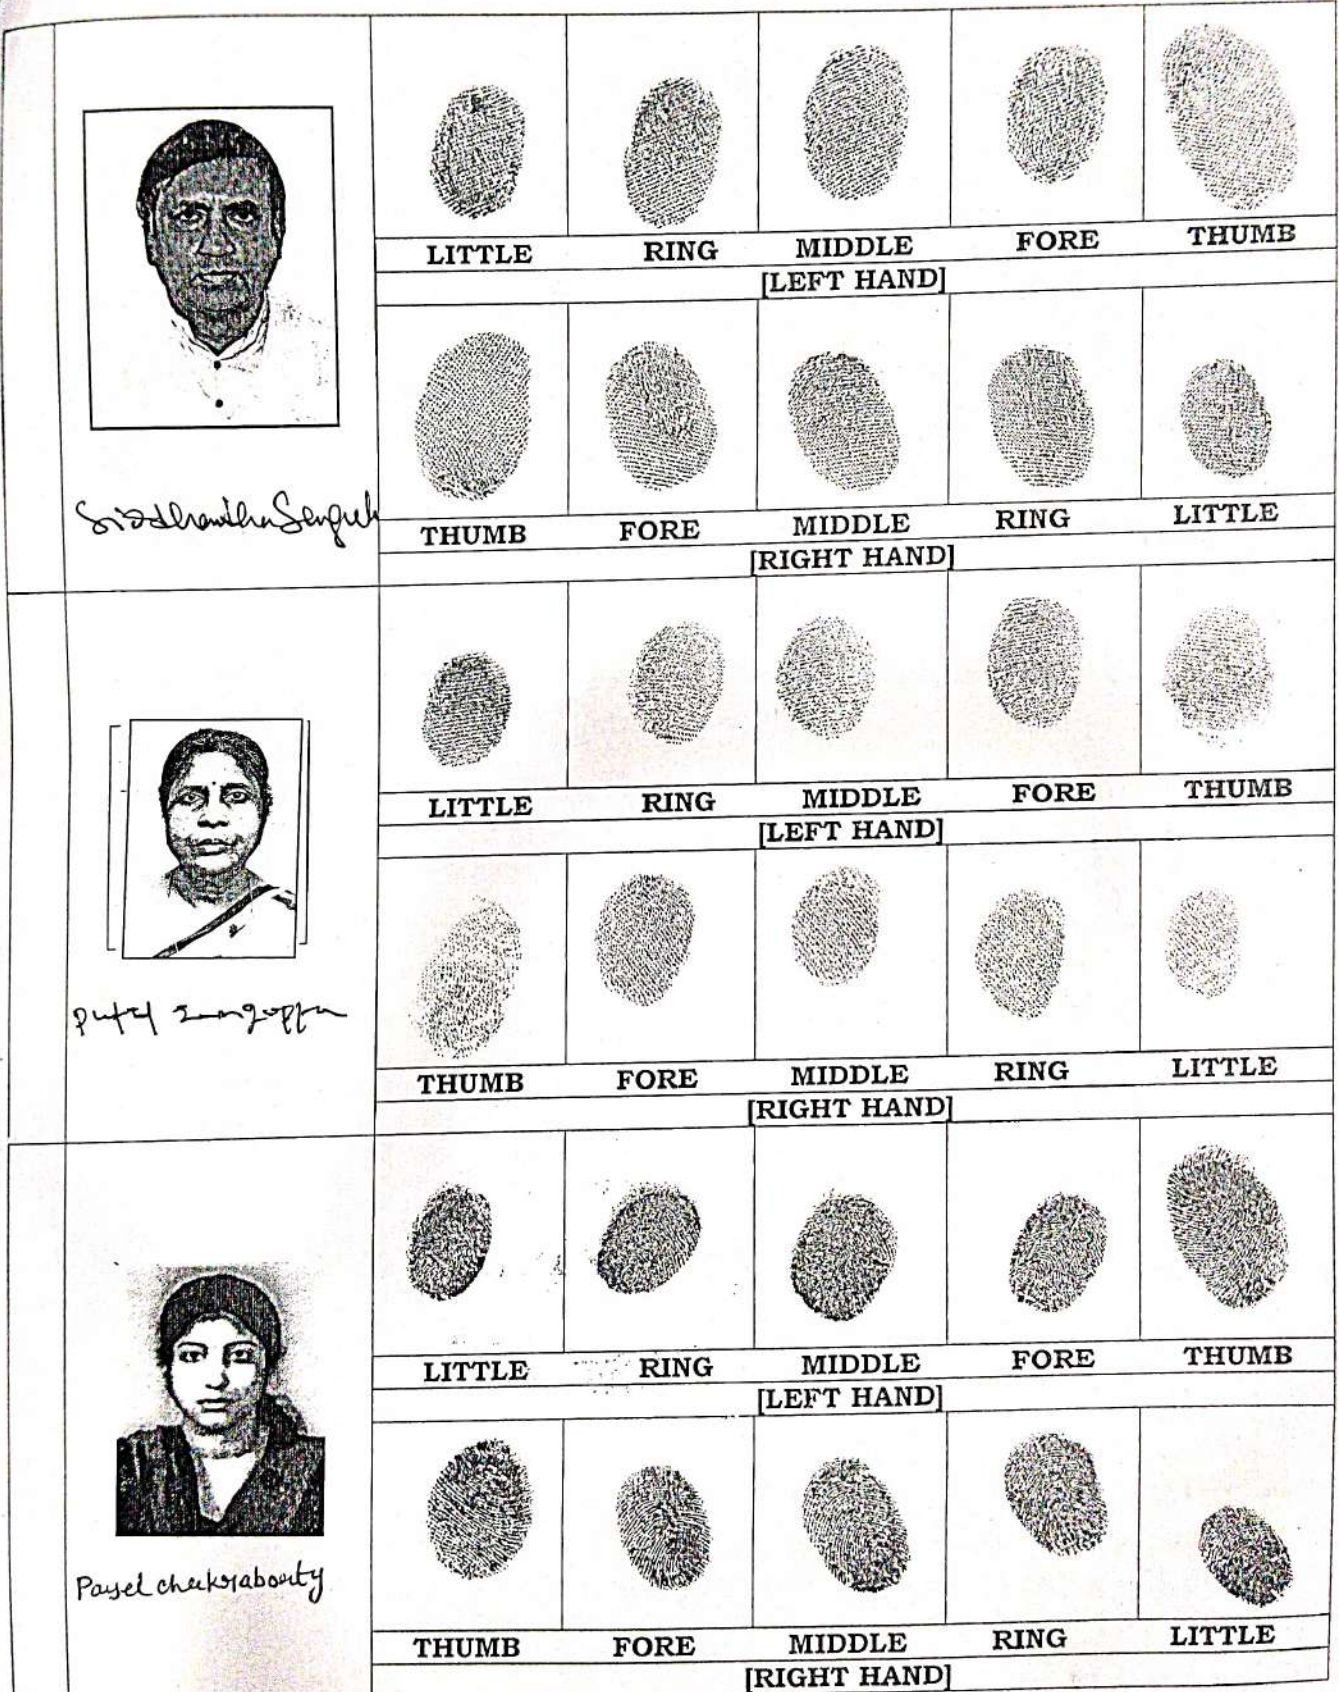 LITTLE RING MIDDLE FORE THUMB
[LEFT HAND]
THUMB FORE MIDDLE RING LITTLE
[RIGHT HAND]
LITTLE RING MIDDLE FORE THUMB
[LEFT HAND]
THUMB FORE MIDDLE RING LITTLE
[RIGHT HAND]
Payel chakraborty
LITTLE RING MIDDLE FORE THUMB
[LEFT HAND]
THUMB FORE MIDDLE RING LITTLE
[RIGHT HAND]